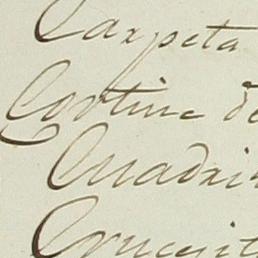 Carpeta
Cortina de
Cuadri
Crucesit